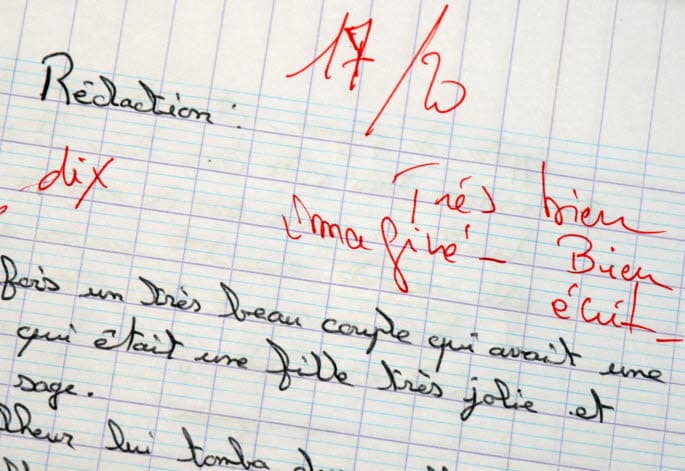 17/20
Rédaction :
dix
Très bien
imaginé - Bien
écrit -
fois un très beau couple qui avait une
qui était une fille très jolie et
sage.
lheur lui tomba